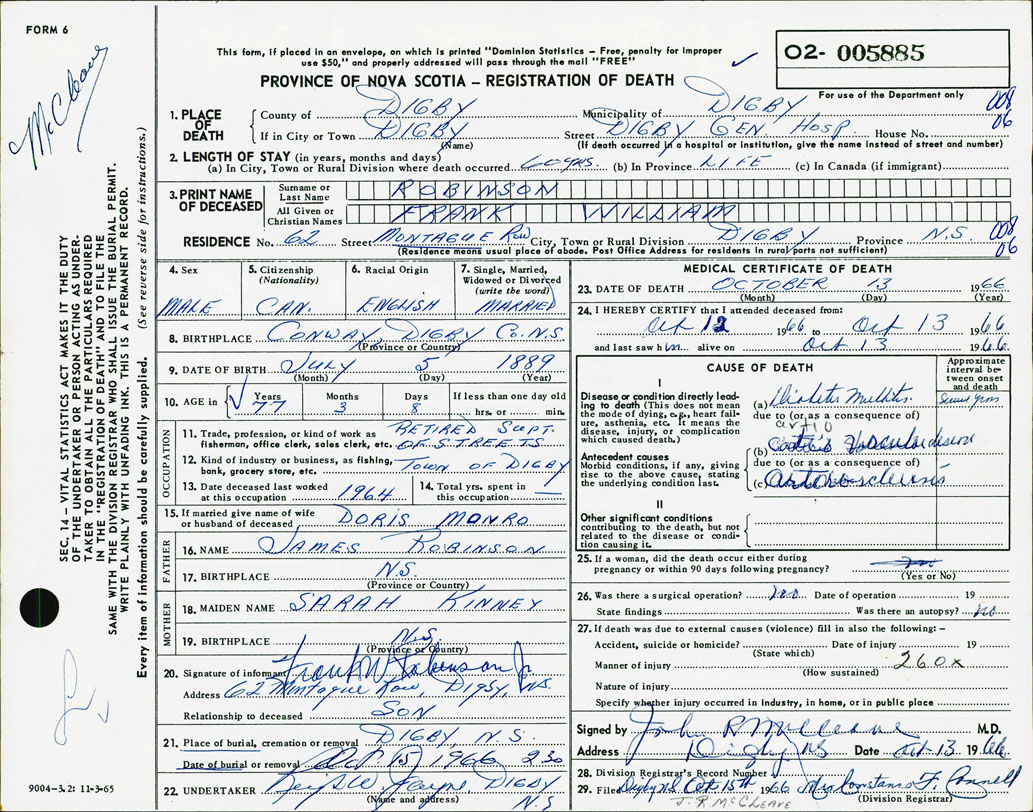 FORM 6
McCleave
This form, if placed in an envelope, on which is printed "Dominion Statistics – Free, penalty for improper
use $50," and properly addressed will pass through the mail "FREE"
O2- 005885
PROVINCE OF NOVA SCOTIA – REGISTRATION OF DEATH
For use of the Department only
1. PLACE OF DEATH
County of DIGBY Municipality of DIGBY 008
If in City or Town DIGBY Street DIGBY GEN HOSP House No. 06
(Name) (If death occurred in a hospital or institution, give the name instead of street and number)
2. LENGTH OF STAY (in years, months and days)
(a) In City, Town or Rural Division where death occurred 60 yrs. (b) In Province LIFE (c) In Canada (if immigrant)
3. PRINT NAME OF DECEASED
Surname or Last Name ROBINSON
All Given or Christian Names FRANK WILLIAM
RESIDENCE No. 62 Street MONTAGUE ROW City, Town or Rural Division DIGBY Province N.S. 008
(Residence means usual place of abode. Post Office Address for residents in rural parts not sufficient) 06
4. Sex
MALE
5. Citizenship (Nationality)
CAN.
6. Racial Origin
ENGLISH
7. Single, Married, Widowed or Divorced (write the word)
MARRIED
8. BIRTHPLACE CONWAY, DIGBY CO. N.S.
(Province or Country)
9. DATE OF BIRTH JULY 5 1889
(Month) (Day) (Year)
10. AGE in Years Months Days If less than one day old
77 3 8 hrs. or min.
OCCUPATION
11. Trade, profession, or kind of work as fisherman, office clerk, sales clerk, etc. RETIRED SUPT. OF STREETS
12. Kind of industry or business, as fishing, bank, grocery store, etc. TOWN OF DIGBY
13. Date deceased last worked at this occupation 1964
14. Total yrs. spent in this occupation —
15. If married give name of wife or husband of deceased DORIS MONRO
FATHER
16. NAME JAMES ROBINSON
17. BIRTHPLACE N.S.
(Province or Country)
MOTHER
18. MAIDEN NAME SARAH KINNEY
19. BIRTHPLACE N.S.
(Province or Country)
20. Signature of informant Frank W Robinson Jr
Address 62 Montague Row, DIGBY, N.S.
Relationship to deceased SON
21. Place of burial, cremation or removal DIGBY, N.S.
Date of burial or removal Oct 15, 1966 2 30
22. UNDERTAKER Jayne DIGBY
(Name and address) N.S
MEDICAL CERTIFICATE OF DEATH
23. DATE OF DEATH OCTOBER 13 1966
(Month) (Day) (Year)
24. I HEREBY CERTIFY that I attended deceased from:
Oct 12 1966 to Oct 13 1966
and last saw him alive on Oct 13 1966
CAUSE OF DEATH
Approximate interval between onset and death
I
Disease or condition directly leading to death (This does not mean the mode of dying, e.g., heart failure, asthenia, etc. It means the disease, injury, or complication which caused death.)
(a) Diabetes Mellitus
due to (or as a consequence of)
Antecedent causes
Morbid conditions, if any, giving rise to the above cause, stating the underlying condition last.
(b) Vascular disease
due to (or as a consequence of)
(c) Arteriosclerosis
II
Other significant conditions contributing to the death, but not related to the disease or condition causing it.
25. If a woman, did the death occur either during pregnancy or within 90 days following pregnancy?
(Yes or No)
26. Was there a surgical operation? no Date of operation 19
State findings Was there an autopsy? no
27. If death was due to external causes (violence) fill in also the following: –
Accident, suicide or homicide? Date of injury 19
(State which)
Manner of injury 260x
(How sustained)
Nature of injury
Specify whether injury occurred in industry, in home, or in public place
Signed by John R McCleave M.D.
Address Digby NS Date Oct 13 1966
28. Division Registrar's Record Number
29. Filed Digby N.S. Oct. 15th 1966 Mrs Constance F. Connell
J. R. McCLEAVE (Division Registrar)
SEC. 14 – VITAL STATISTICS ACT MAKES IT THE DUTY
OF THE UNDERTAKER OR PERSON ACTING AS UNDER-
TAKER TO OBTAIN ALL THE PARTICULARS REQUIRED
IN THE "REGISTRATION OF DEATH" AND TO FILE THE
SAME WITH THE DIVISION REGISTRAR WHO SHALL ISSUE THE BURIAL PERMIT.
WRITE PLAINLY WITH UNFADING INK. THIS IS A PERMANENT RECORD.
Every item of information should be carefully supplied. (See reverse side for instructions.)
9004–3.2: 11-3-65